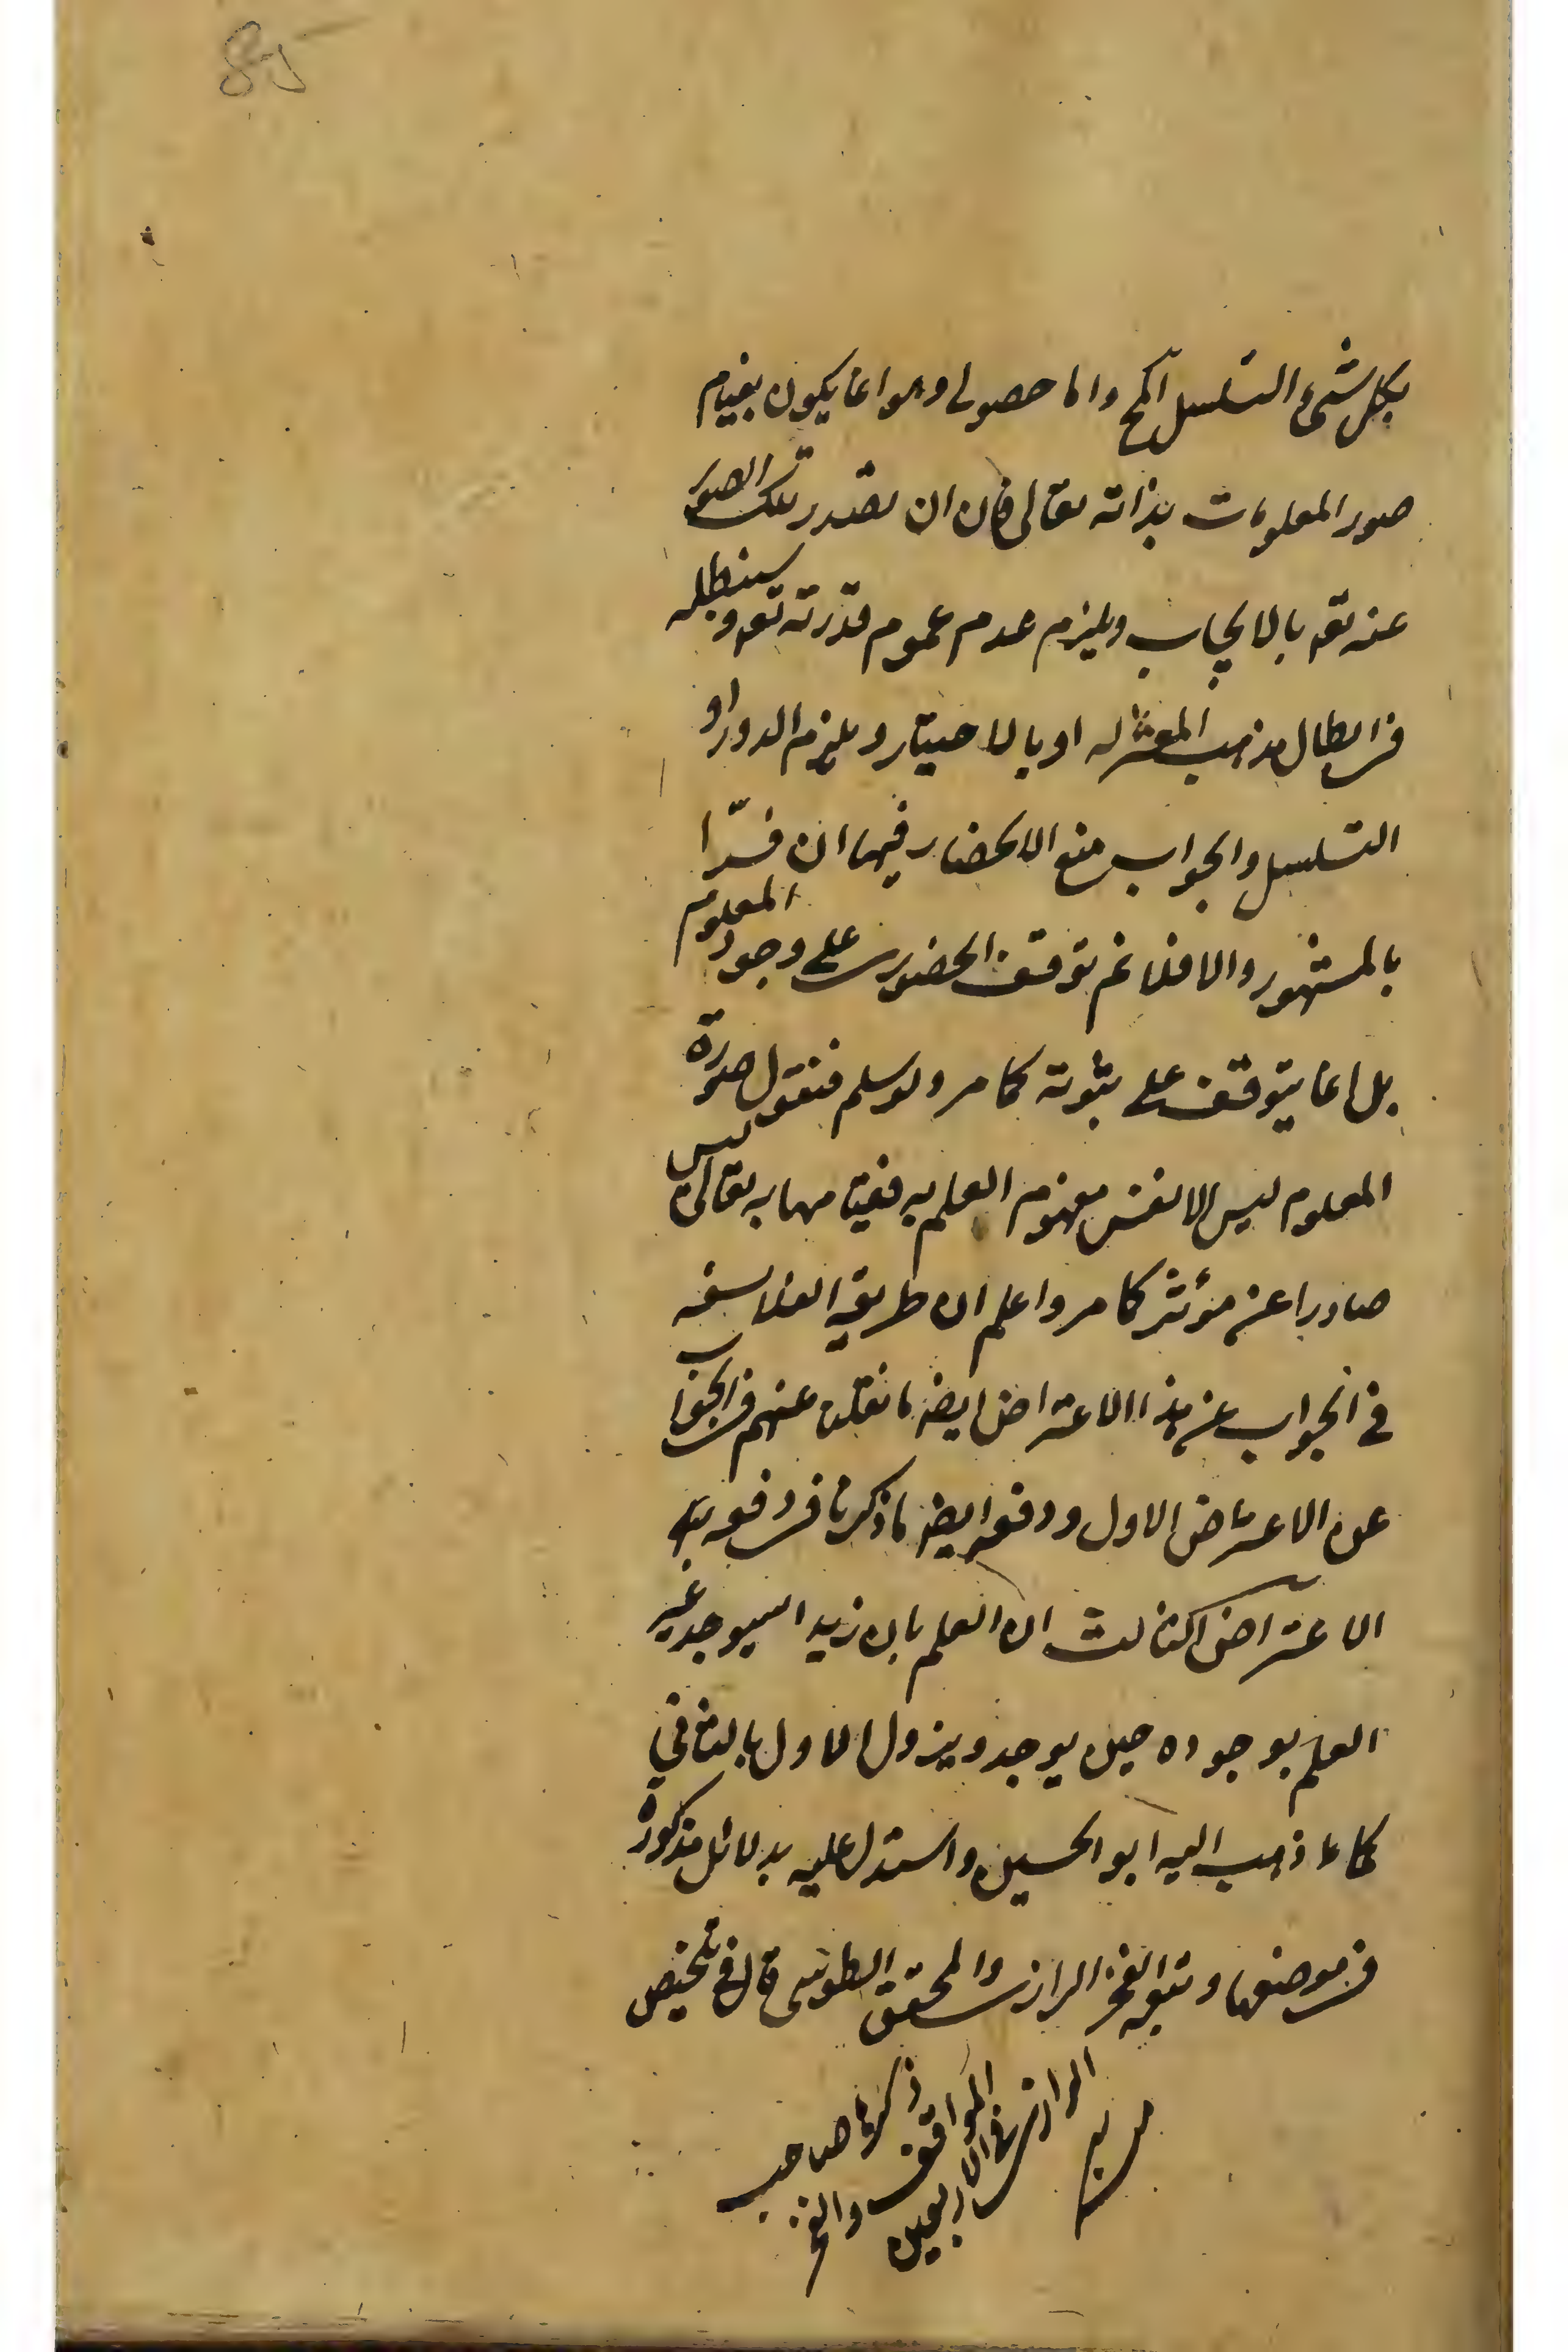 85
بكل شىء التسلسل المح واما حصولى وهو انما يكون بقيام
صور المعلومات بذاته تعالى فان ان تصدر تلك الصور
عنه تعه بالايجاب ويلزم عدم عموم قدرته تعه وسنبطله
فى ابطال مذهب المعتزله او بالاختيار ويلزم الدور او
التسلسل والجواب منع الانحصار فيهما ان فسّرا
بالمشهور والا فلا ثم توقف الحضورى على وجود المعلوم
بل انما يتوقف على ثبوته كما مر ولو سلم فنقول صورة
المعلوم ليس الا نفس مفهوم العلم به فقيامها به تعالى ليس
صادرا عن مؤثر كما مر واعلم ان طريقه الفلاسفه
فى الجواب عن هذا الاعتراض ايضا ما نقلنا عنهم فى الجواب
عن الاعتراض الاول ودفعه ايضا ما ذكرنا فى دفعه
الاعتراض الثالث ان العلم بان زيدا سيوجد غير
العلم بوجوده حين يوجد ويزول الاول بالثانى
كما ذهب اليه ابو الحسين واستدل عليه بدلائل مذكورة
فى موضعها وتبعه الفخر الرازى والمحقق الطوسى قال فى تلخيص
ذكرها صاحب
المواقف والفخر
الرازى فى الاربعين